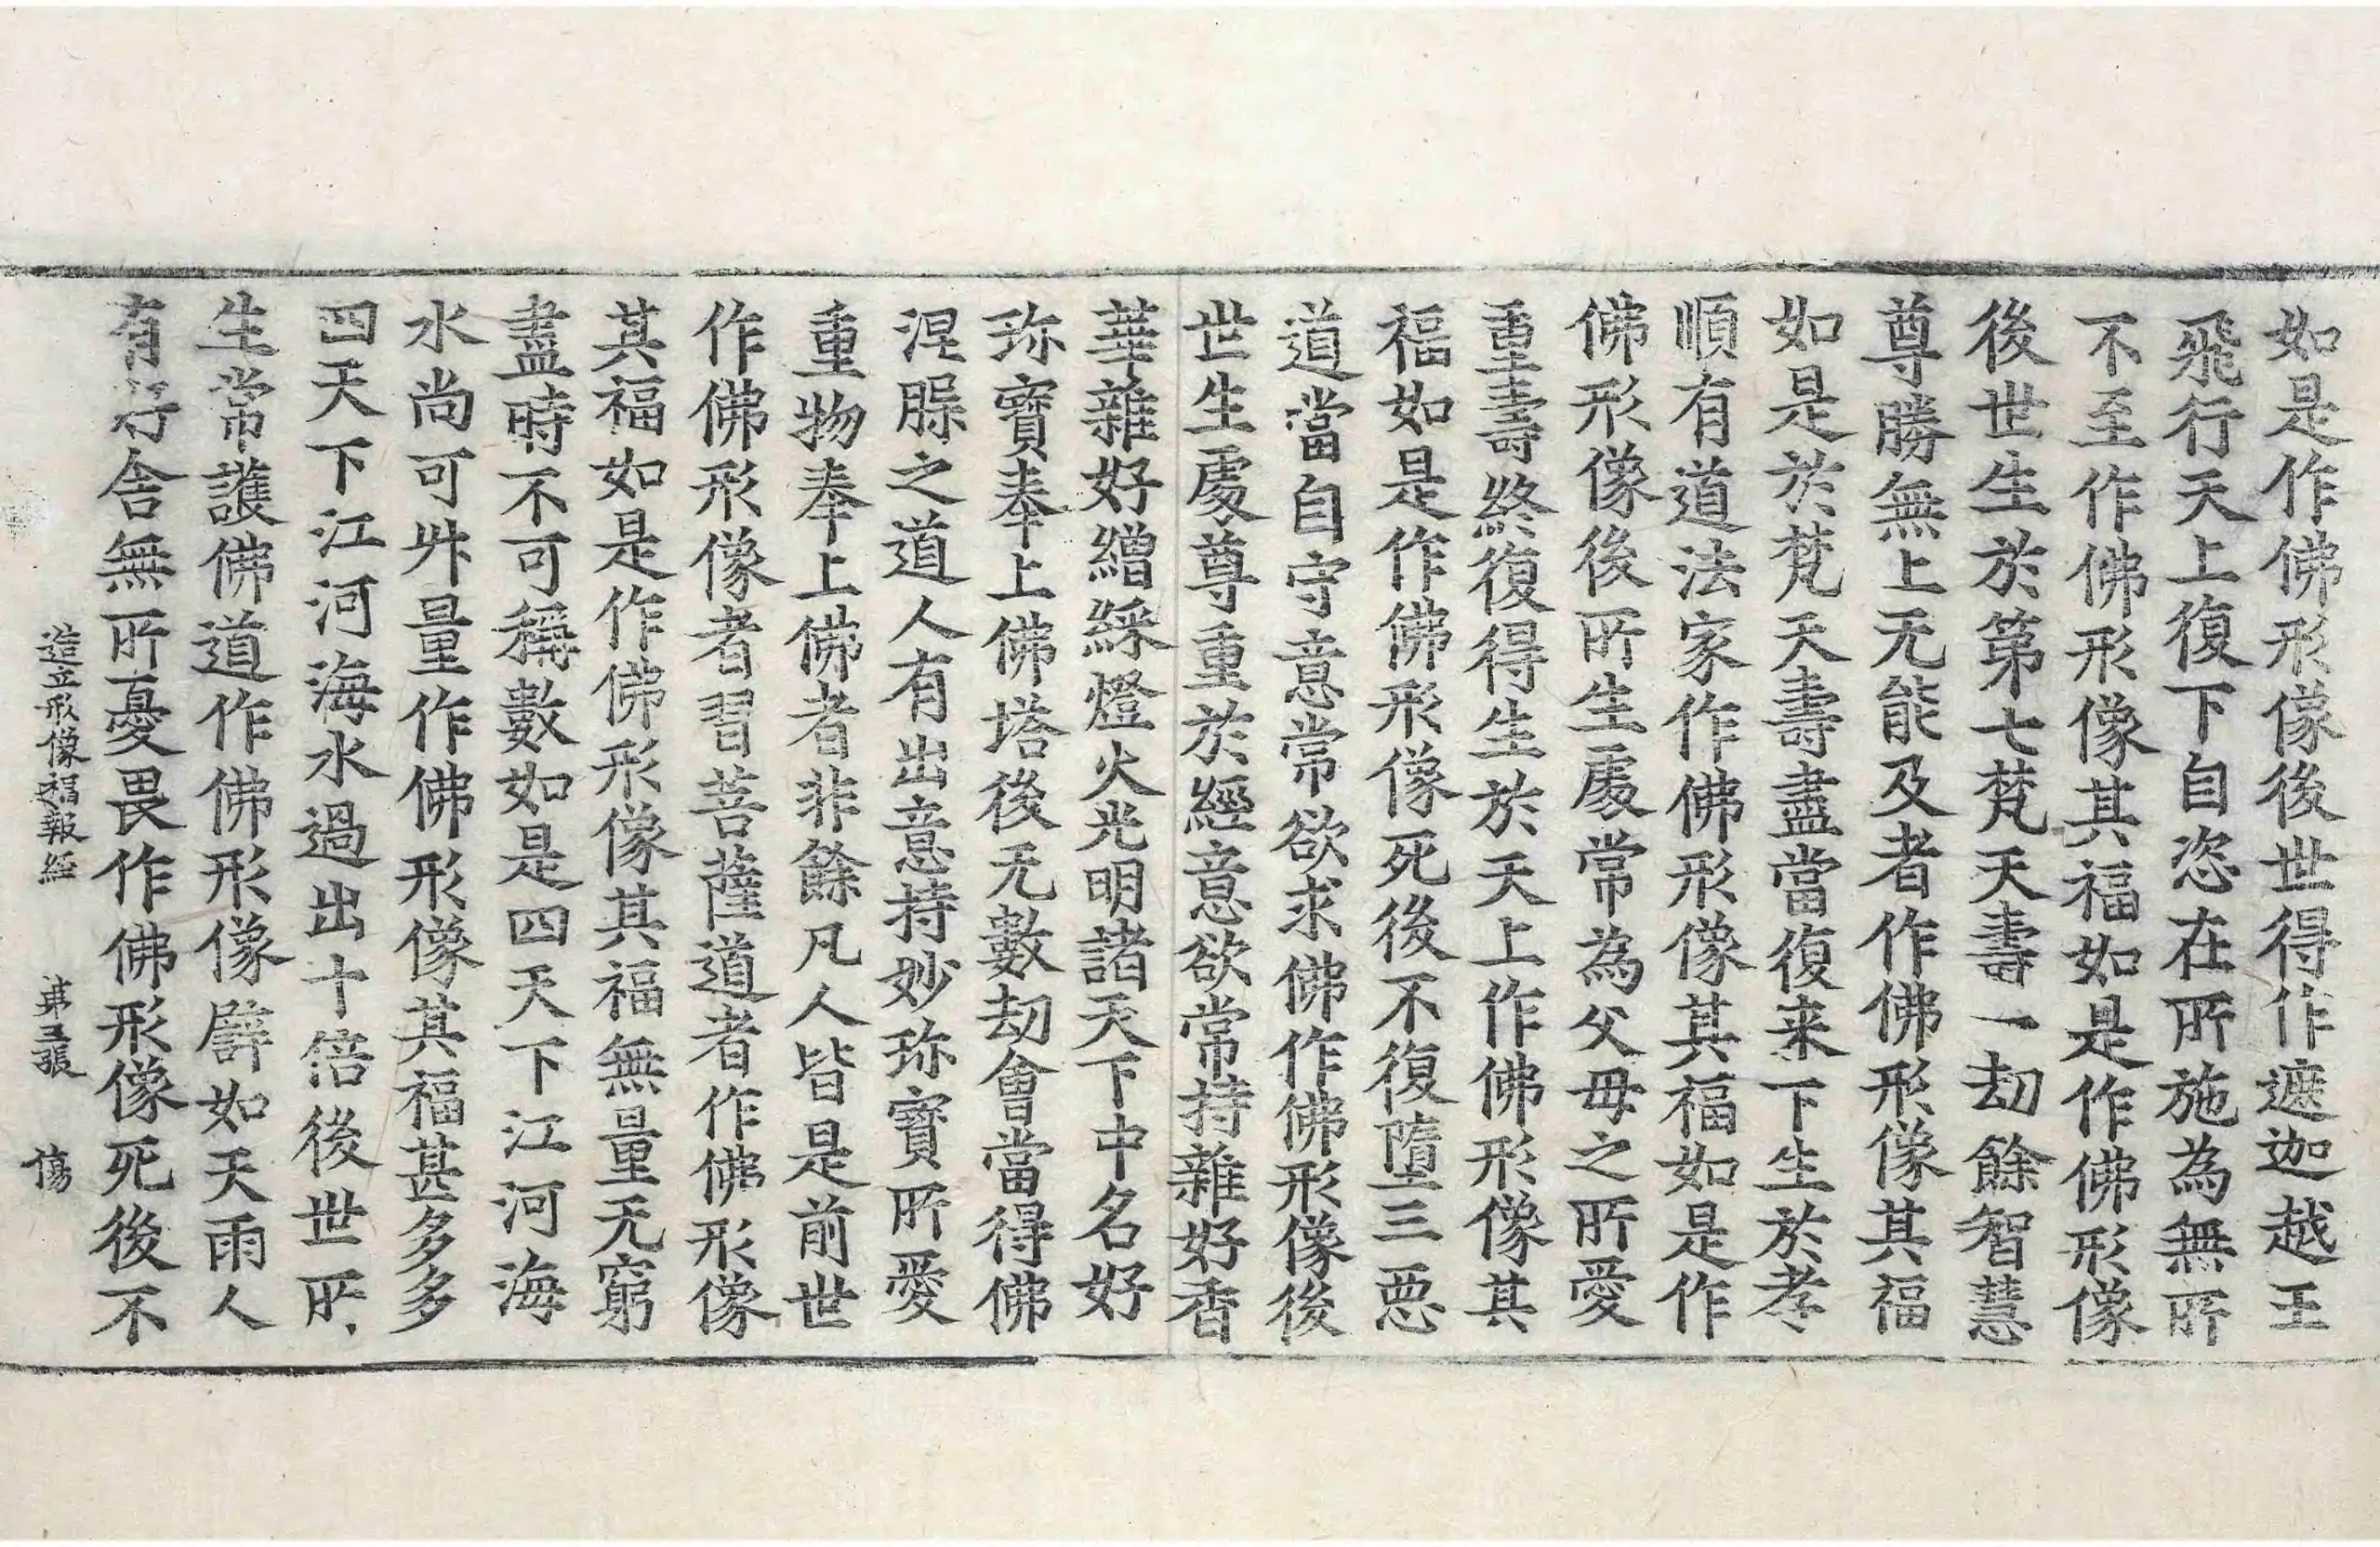 如是作佛形像後世得作遮迦越王
飛行天上復下自恣在所施為無所
不至作佛形像其福如是作佛形像
後世生於第七梵天壽一劫餘智慧
尊勝無上无能及者作佛形像其福
如是於梵天壽盡當復来下生於孝
順有道法家作佛形像其福如是作
佛形像後所生處常為父母之所愛
重壽終復得生於天上作佛形像其
福如是作佛形像死後不復墮三惡
道當自守意常欲求佛作佛形像後
世生處尊重於經意欲常持雜好香
華雜好繒綵燈火光明諸天下中名好
珎寶奉上佛塔後无數劫會當得佛
涅脲之道人有出意持妙珎寶所愛
重物奉上佛者非餘凡人皆是前世
作佛形像者習菩薩道者作佛形像
其福如是作佛形像其福無量无窮
盡時不可稱數如是四天下江河海
水尚可升量作佛形像其福甚多多
四天下江河海水過出十倍後世所
生常護佛道作佛形像譬如天雨人
有好舍無所憂畏作佛形像死後不
造立形像福報經 弟五張 傷